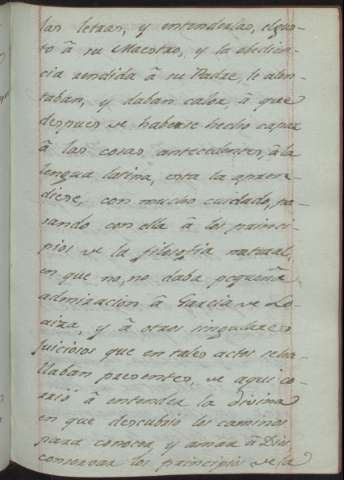 las letras, y entenderlas, el gus-
to â su Maestro, y la obedien-
cia rendida â su Padre, le alen-
taban, y daban calor, â que
despues de haberse hecho capaz
â las cosas antecedentes, â la
lengua latina, esta la apren-
diese, con mucho cuidado, pa-
sando con ella â los princi-
pios de la filosofia natural,
en que no, no daba pequeña
admiracion â Garcia de Lo-
aiza, y â otros singulares
juiciosos que en tales actos se ha-
llaban presentes, de aqui co-
rrió â entender la divina
en que descubrió los caminos
para conocer y amar â Dios
conservar los principios de la